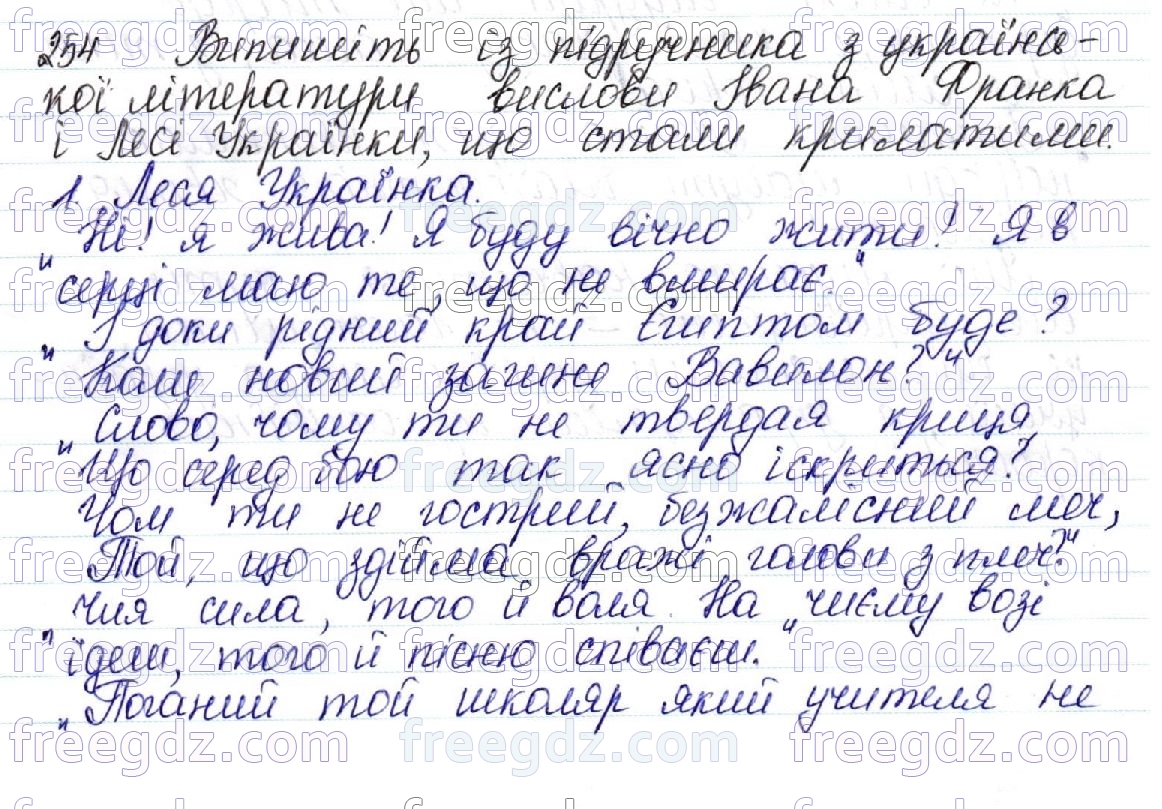 254 Випишіть із підручника з українсь-
кої літератури вислови Івана Франка
і Лесі Українки, що стали крилатими.
1. Леся Українка.
„Ні! я жива! Я буду вічно жити! Я в
серці маю те, що не вмирає."
„І доки рідний край Єгиптом буде?
Коли новий загине Вавилон?"
„Слово, чому ти не твердая криця,
Що серед бою так ясно іскриться?
Чом ти не гострий, безжалісний меч,
Той, що здійма вражі голови з плеч?"
„Чия сила, того й воля. На чиєму возі
їдеш, того й пісню співаєш."
„Поганий той школяр який учителя не
freegdz.com